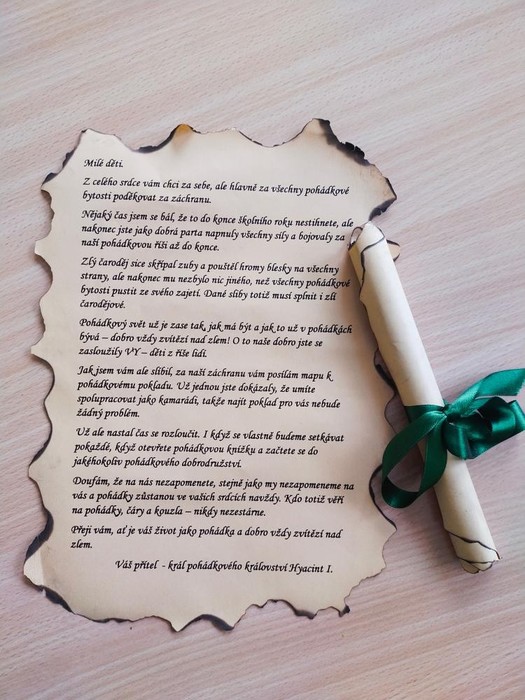 Milé děti.
Z celého srdce vám chci za sebe, ale hlavně za všechny pohádkové
bytosti poděkovat za záchranu.
Nějaký čas jsem se bál, že to do konce školního roku nestihnete, ale
nakonec jste jako dobrá parta napnuly všechny síly a bojovaly za
naší pohádkovou říši až do konce.
Zlý čaroděj sice skřípal zuby a pouštěl hromy blesky na všechny
strany, ale nakonec mu nezbylo nic jiného, než všechny pohádkové
bytosti pustit ze svého zajetí. Dané sliby totiž musí splnit i zlí
čarodějové.
Pohádkový svět už je zase tak, jak má být a jak to už v pohádkách
bývá – dobro vždy zvítězí nad zlem! O to naše dobro jste se
zasloužily VY – děti z říše lidí.
Jak jsem vám ale slíbil, za naší záchranu vám posílám mapu k
pohádkovému pokladu. Už jednou jste dokázaly, že umíte
spolupracovat jako kamarádi, takže najít poklad pro vás nebude
žádný problém.
Už ale nastal čas se rozloučit. I když se vlastně budeme setkávat
pokaždé, když otevřete pohádkovou knížku a začtete se do
jakéhokoliv pohádkového dobrodružství.
Doufám, že na nás nezapomenete, stejně jako my nezapomeneme na
vás a pohádky zůstanou ve vašich srdcích navždy. Kdo totiž věří
na pohádky, čáry a kouzla – nikdy nezestárne.
Přeji vám, ať je váš život jako pohádka a dobro vždy zvítězí nad
zlem.
Váš přítel - král pohádkového království Hyacint I.